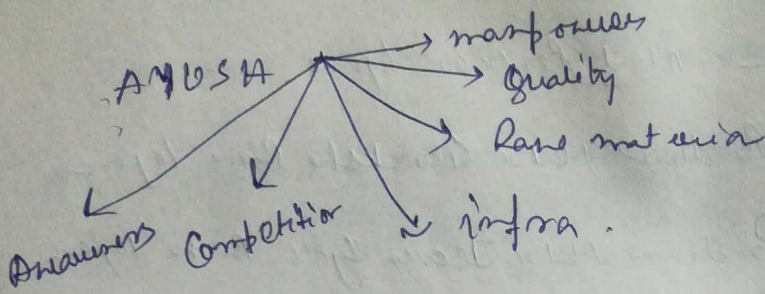 manpower
AYUSH
Quality
Raw materia
Awareness
Competition
infra .